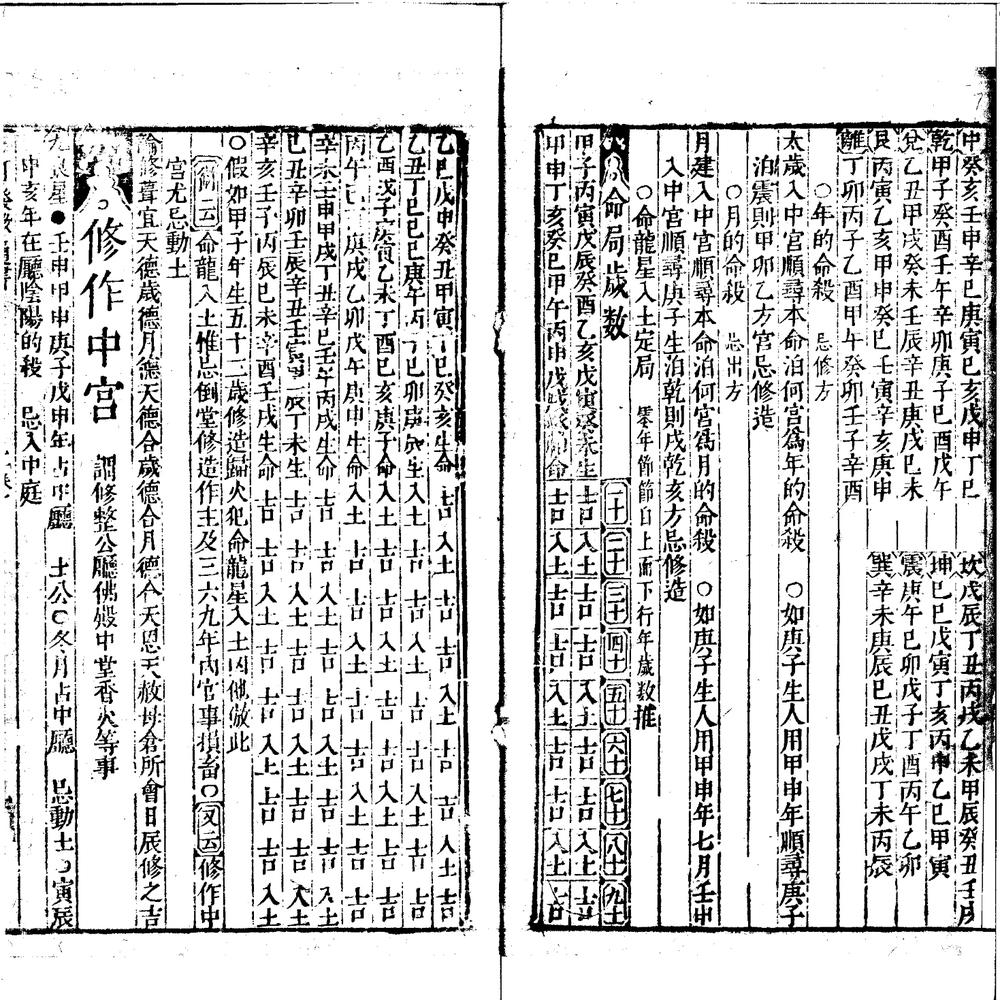 中癸亥壬申辛巳庚寅己亥戊申丁巳　坎戊辰丁丑丙戌乙未甲辰癸丑壬戌
乾甲子癸酉壬午辛卯庚子己酉戊午　坤己巳戊寅丁亥丙申乙巳甲寅
兌乙丑甲戌癸未壬辰辛丑庚戌己未　震庚午己卯戊子丁酉丙午乙卯
艮丙寅乙亥甲申癸巳壬寅辛亥庚申　巽辛未庚辰己丑戊戌丁未丙辰
離丁卯丙子乙酉甲午癸卯壬子辛酉
○年的命殺　忌修方
太歲入中宮順尋本命泊何宮爲年的命殺　○如庚子生人用甲申年順尋庚子
泊震則甲卯乙方宮忌修造
○月的命殺　忌出方
月建入中宮順尋本命泊何宮爲月的命殺　○如庚子生人用甲申年七月壬申
入中宮順尋庚子生泊乾則戌乾亥方忌修造
○命龍星入土定局　零年節節自上而下行年歲數推
命局歲數　一十　二十　三十　四十　五十　六十　七十　八十　九十
甲子丙寅戊辰癸酉乙亥戊寅　生　吉　入土　吉　入土　吉　入土　吉　入土　吉
甲申丁亥癸巳甲午丙申戊戌　命　吉　入土　吉　入土　吉　入土　吉　入土　吉
乙巳戊申癸丑甲寅丁巳癸亥生命　吉　入土　吉　吉　入土　吉　吉　入土　吉
乙丑丁巳己巳庚午　丁己卯　生入土　吉　吉　入土　吉　吉　入土　吉　吉
乙酉戊子庚寅乙未丁酉己亥庚子命入土　吉　入土　吉　吉　入土　吉　入土　吉
丙午　庚戌乙卯戊午庚申生命入土　吉　吉　入土　吉　吉　入土　吉　吉
辛未壬申甲戌丁丑辛巳壬午丙戌生命　吉　吉　入土　吉　吉　入土　吉　吉　入土
己丑辛卯壬辰辛丑壬寅　丁未生　吉　吉　入土　吉　吉　入土　吉　吉　入土
辛亥壬子丙辰己未辛酉壬戌生命　吉　吉　入土　吉　吉　入土　吉　吉　入土
○假如甲子年生五十二歲修造歸火犯命龍星入土凶他倣此
云命龍入土惟忌倒堂修造作主及三六九年內官事損畜○又云修作中
宮尤忌動土
論修葺宜天德歲德月德天德合歲德合月德合天恩天赦母倉所會日辰修之吉
修作中宮　謂修整公廳佛殿中堂香火等事
星●壬申甲申庚子戊申年占中廳　土公○冬月占中廳　忌動土○寅辰
申亥年在廳陰陽的殺　忌入中庭